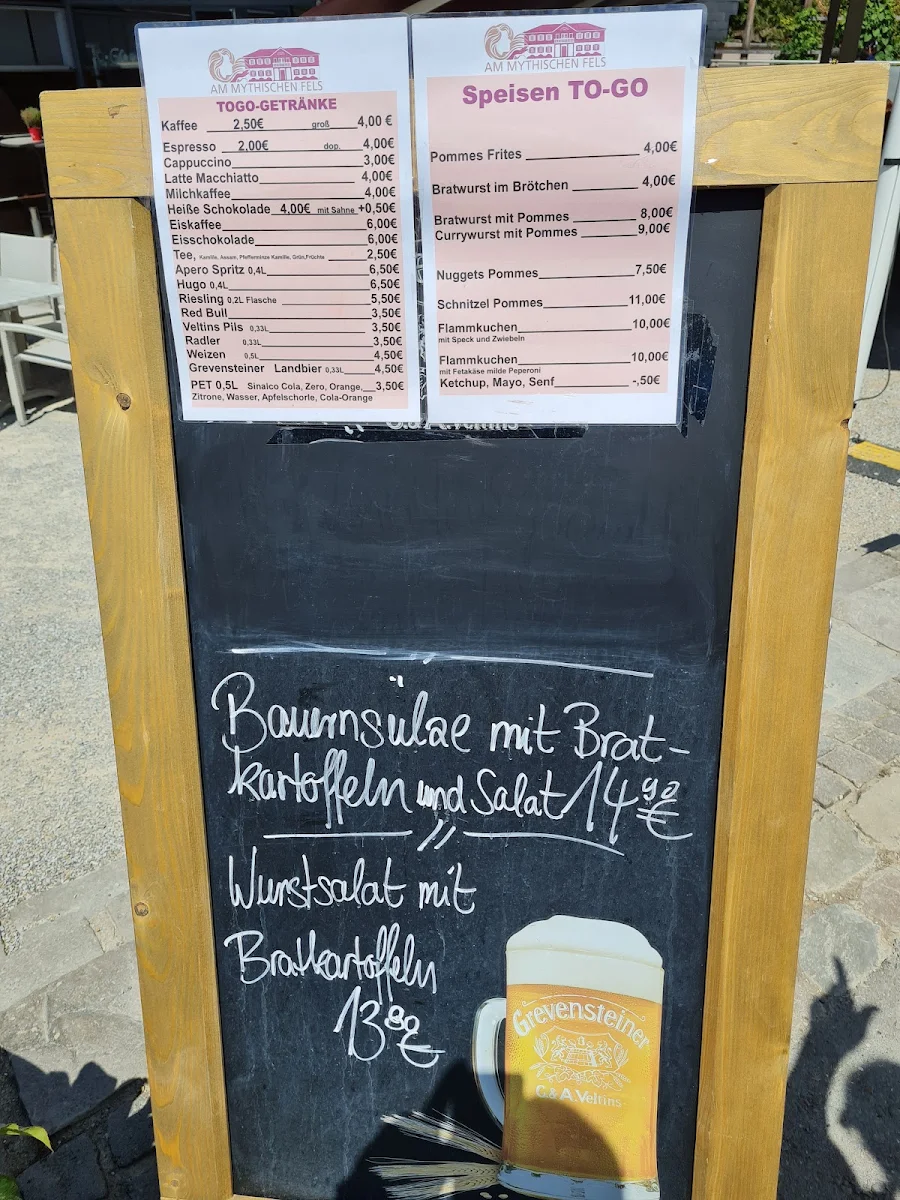 AM MYTHISCHEN FELS
TOGO-GETRÄNKE
Kaffee 2,50€ groß 4,00 €
Espresso 2,00€ dop. 4,00€
Cappuccino 3,00€
Latte Macchiato 4,00€
Milchkaffee 4,00€
Heiße Schokolade 4,00€ mit Sahne +0,50€
Eiskaffee 6,00€
Eisschokolade 6,00€
Tee, Kamille, Assam, Pfefferminze Kamille, Grün,Früchte 2,50€
Apero Spritz 0,4L 6,50€
Hugo 0,4L 6,50€
Riesling 0,2L Flasche 5,50€
Red Bull 3,50€
Veltins Pils 0,33L 3,50€
Radler 0,33L 3,50€
Weizen 0,5L 4,50€
Grevensteiner Landbier 0,33L 4,50€
PET 0,5L Sinalco Cola, Zero, Orange, 3,50€
Zitrone, Wasser, Apfelschorle, Cola-Orange
AM MYTHISCHEN FELS
Speisen TO-GO
Pommes Frites 4,00€
Bratwurst im Brötchen 4,00€
Bratwurst mit Pommes 8,00€
Currywurst mit Pommes 9,00€
Nuggets Pommes 7,50€
Schnitzel Pommes 11,00€
Flammkuchen 10,00€
mit Speck und Zwiebeln
Flammkuchen 10,00€
mit Fetakäse milde Peperoni
Ketchup, Mayo, Senf -,50€
Bauernsülze mit Brat-
kartoffeln und Salat 14,90 €
Wurstsalat mit
Bratkartoffeln
13,80 €
Grevensteiner
C.&A.Veltins